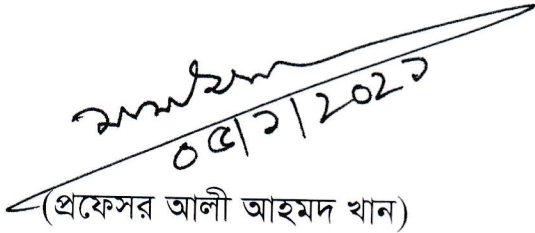 ০৫|১|২০২১
(প্রফেসর আলী আহমদ খান)